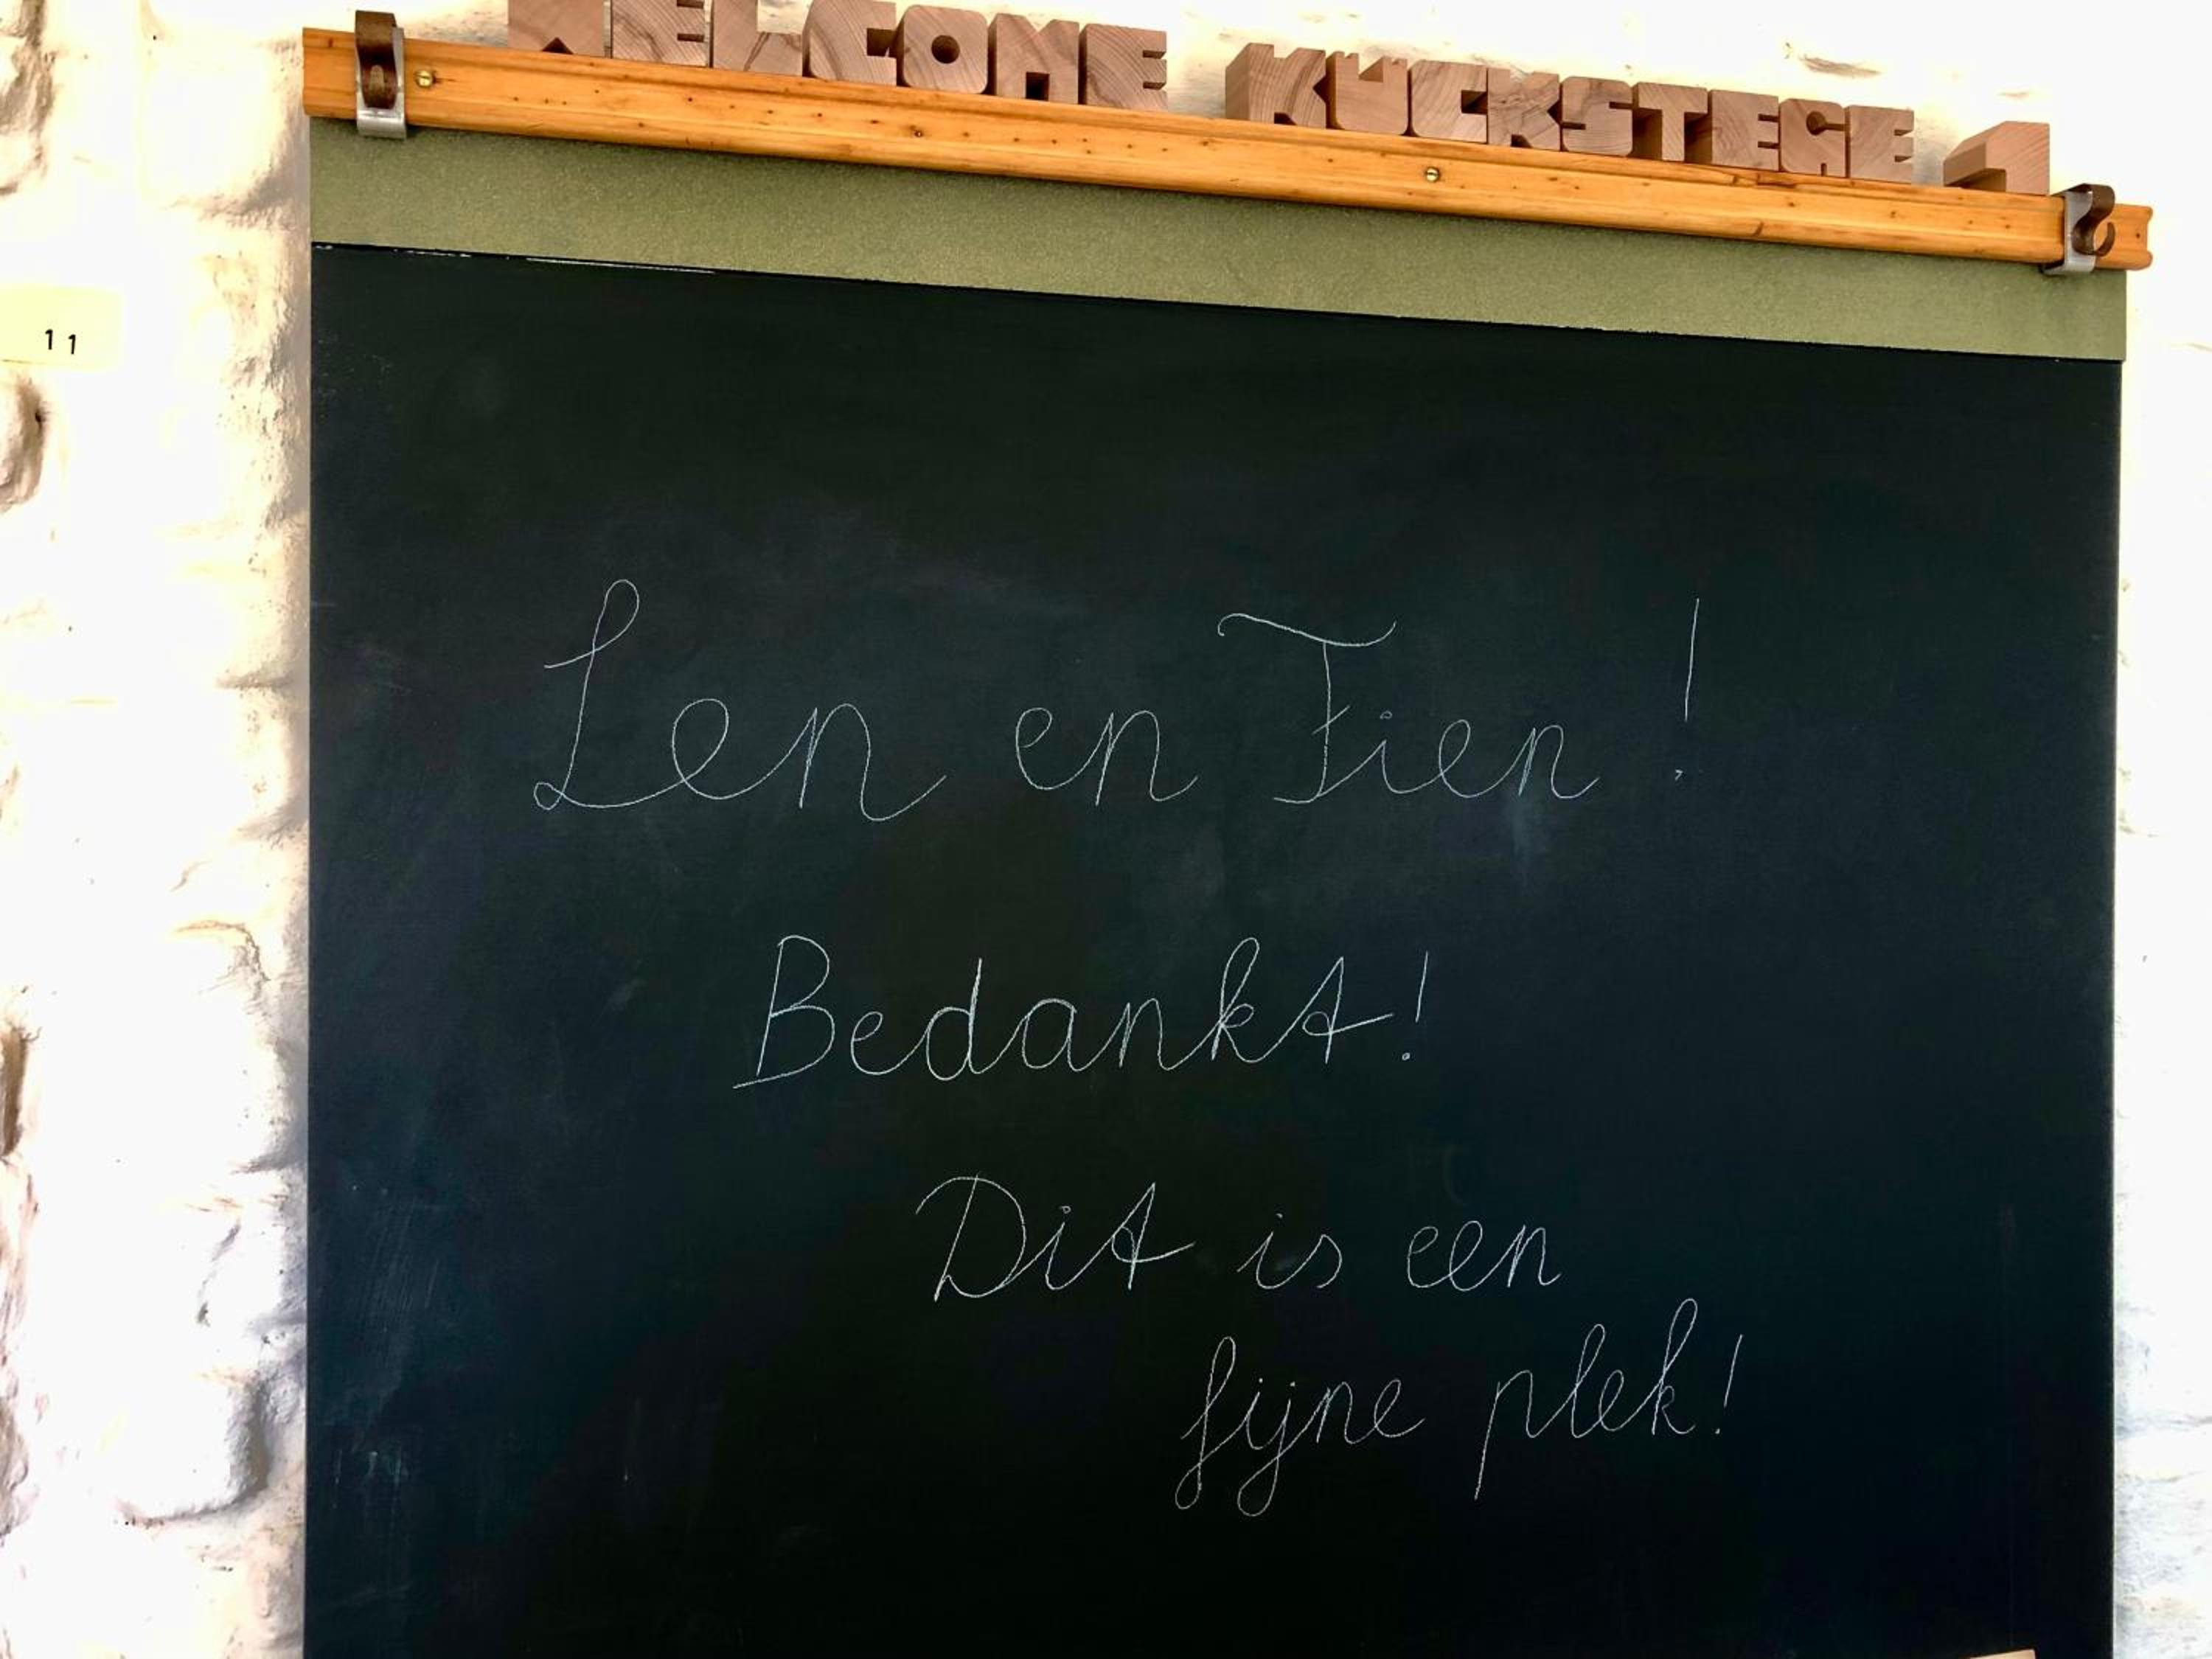 WELCOME KÜCKSTEGE 1
11
Len en Fien!
Bedankt!
Dit is een
fijne plek!